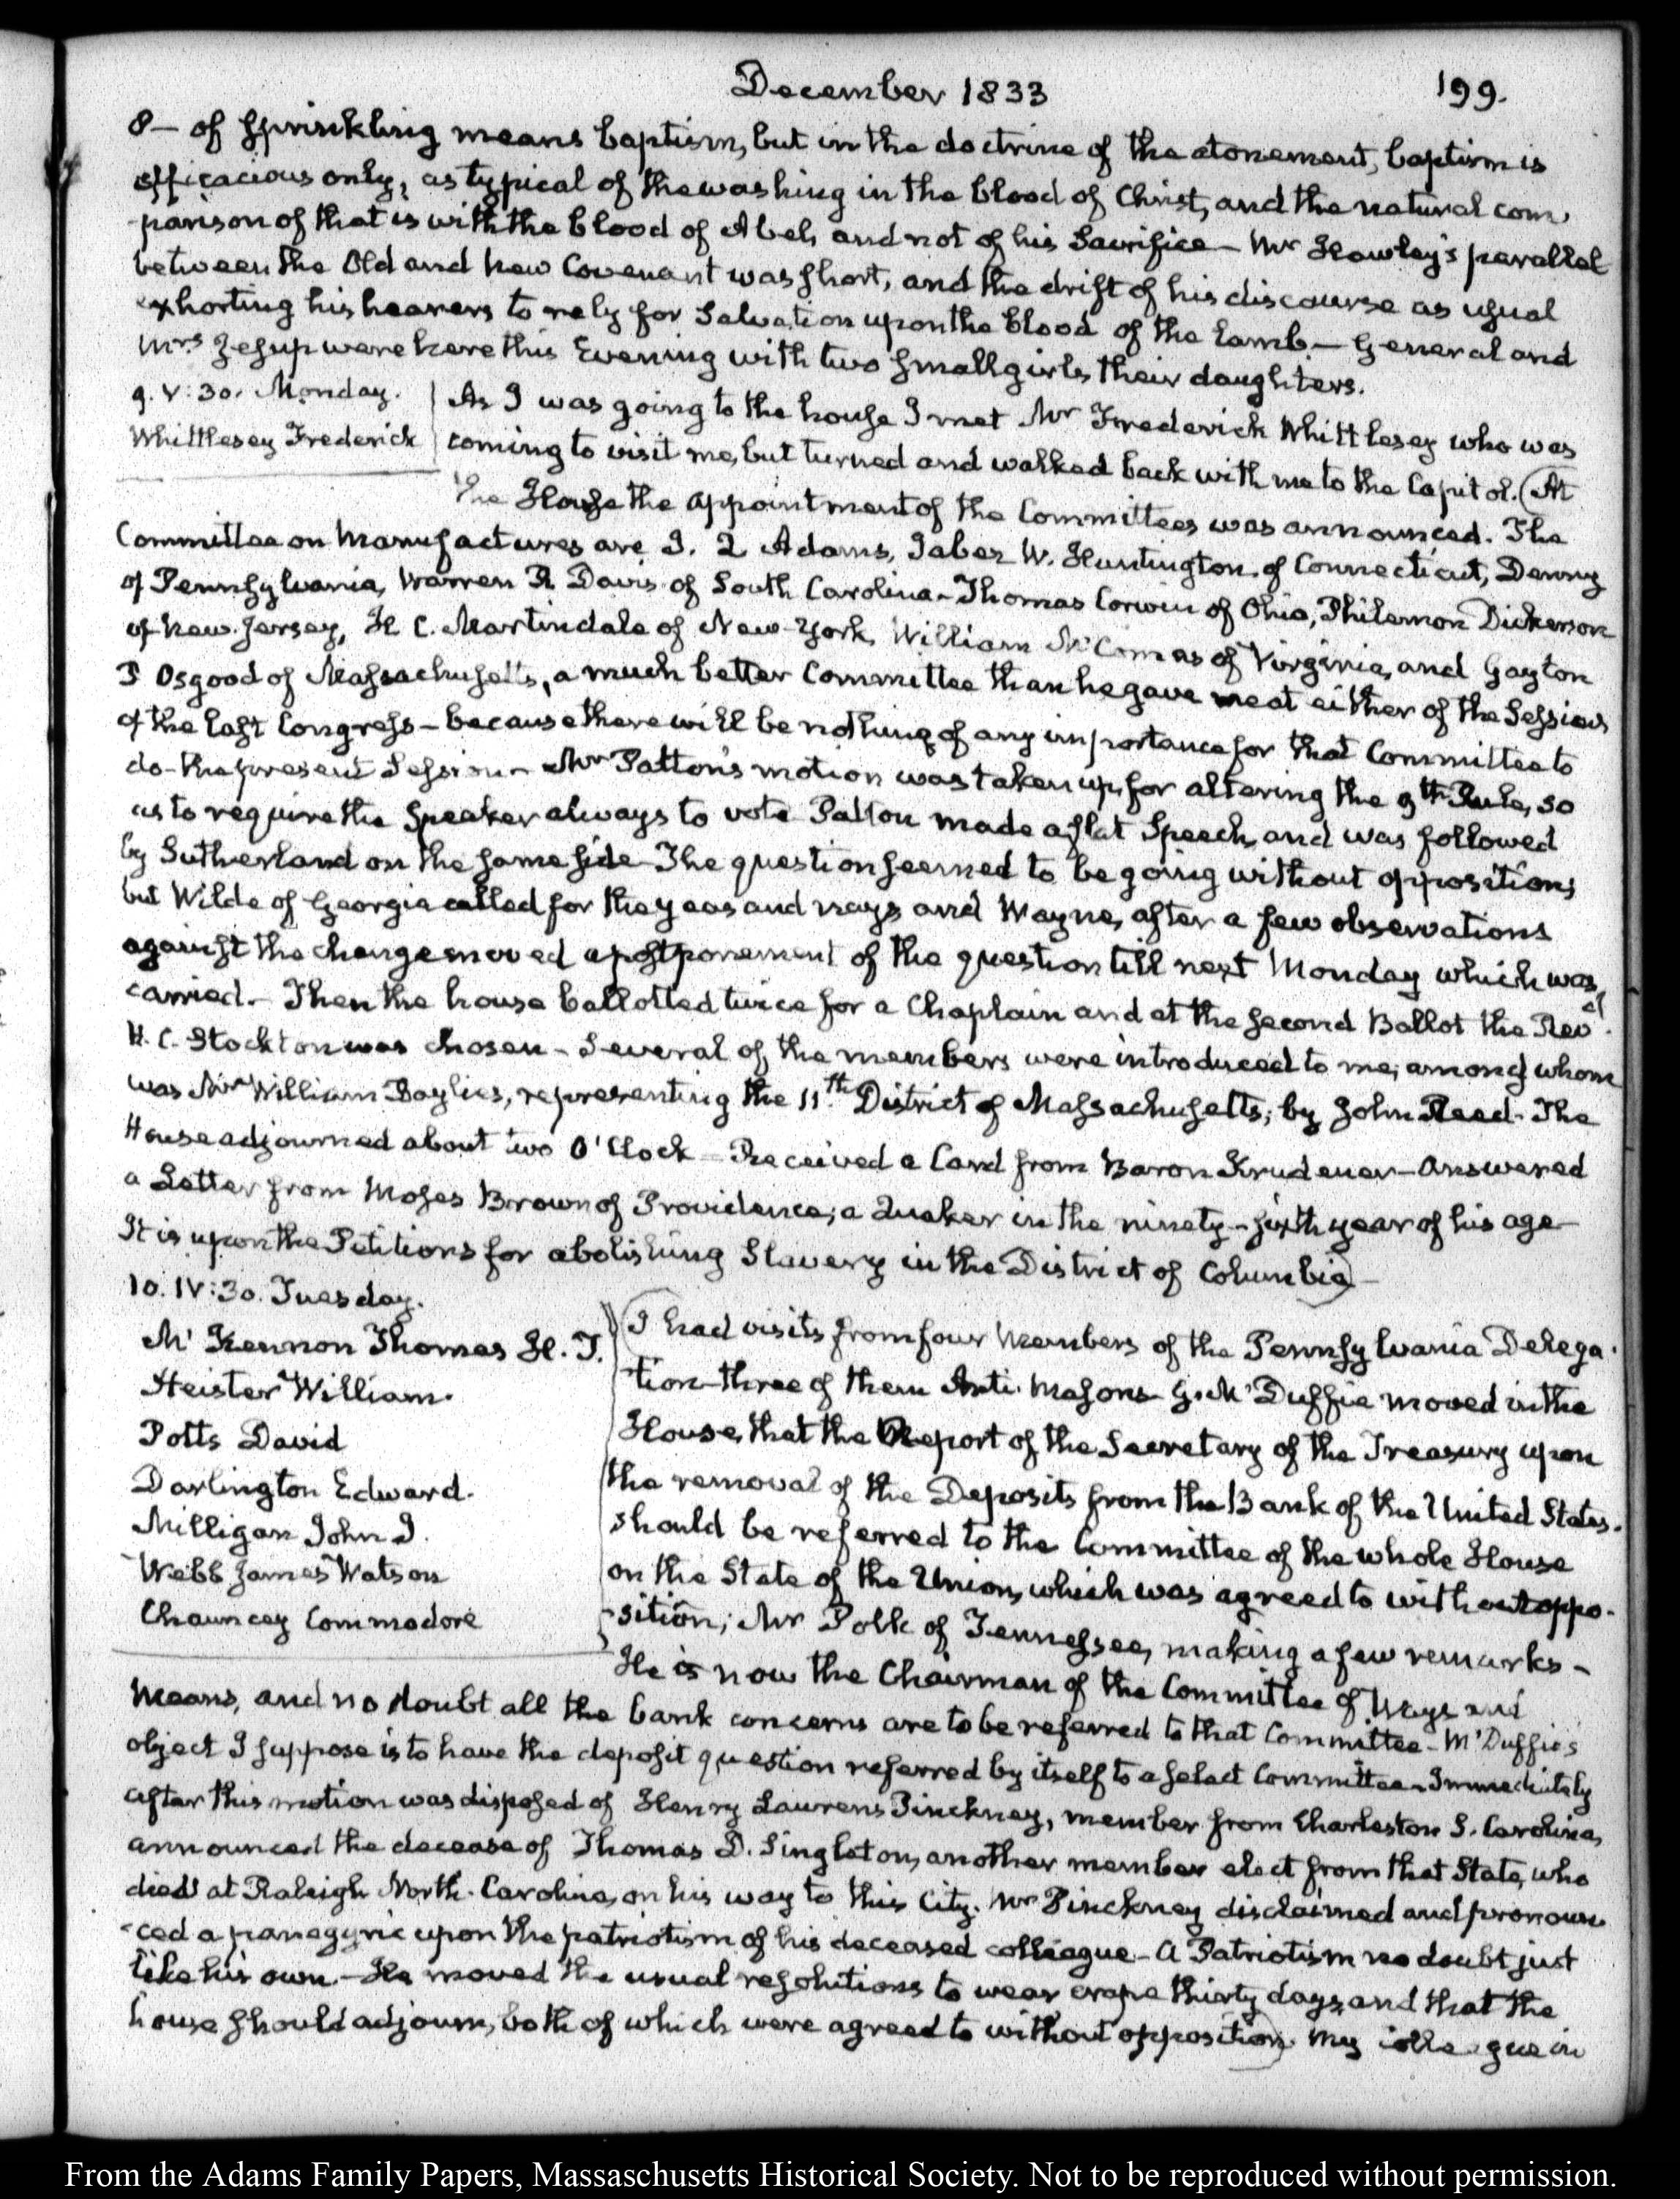 December 1833
199.
8 — of sprinkling means baptism, but in the doctrine of the atonement, baptism is
efficacious only, as typical of the washing in the blood of Christ, and the natural com-
-parison of that is with the blood of Abel, and not of his Sacrifice — Mr Hawley's parallel
between the Old and New Covenant was short, and the drift of his discourse as usual
exhorting his hearers to rely for Salvation upon the blood of the Lamb — General and
Mrs Jesup were here this Evening with two small girls, their daughters.
9. V:30. Monday.
Whittlesey Frederick
As I was going to the house I met Mr Frederick Whittlesey who was
coming to visit me, but turned and walked back with me to the Capitol. (At
the House the appointment of the Committees was announced. The
Committee on Manufactures are J. Q Adams, Jabez W. Huntington of Connecticut, Denny
of Pennsylvania, Warren R Davis of South Carolina — Thomas Corwin of Ohio, Philemon Dickerson
of New-Jersey, H C. Martindale of New-York, William McComas of Virginia, and Gayton
P Osgood of Massachusetts, a much better Committee than he gave me at either of the Sessions
of the last Congress — because there will be nothing of any importance for that Committee to
do the present Session — Mr Patton's motion was taken up, for altering the 9th Rule, so
as to require the Speaker always to vote Patton made a flat Speech, and was followed
by Sutherland on the same side. The question seemed to be going without opposition;
but Wilde of Georgia called for the yeas and nays, and Wayne, after a few observations
against the change moved a postponement of the question till next Monday which was
carried. — Then the house ballotted twice for a Chaplain and at the second Ballot the Revd.
H. C. Stockton was chosen — Several of the members were introduced to me; among whom
was Mr William Baylies, representing the 11th District of Massachusetts; by John Reed. The
House adjourned about two O'Clock — Received a Card from Baron Krudener — Answered
a Letter from Moses Brown of Providence; a Quaker in the ninety-sixth year of his age
It is upon the Petitions for abolishing Slavery in the District of Columbia) —
10. IV:30. Tuesday.
Mc Kennon Thomas H. T.
Heister William.
Potts David
Darlington Edward.
Milligan John J.
Webb James Watson
Chauncey Commodore
(I had visits from four Members of the Pennsylvania Delega-
tion — three of them Anti-Masons — G. McDuffie moved in the
House, that the Report of the Secretary of the Treasury upon
the removal of the Deposits from the Bank of the United States.
should be referred to the Committee of the whole House
on the State of the Union, which was agreed to without oppo-
-sition; Mr Polk of Tennessee, making a few remarks —
He is now the Chairman of the Committee of Ways and
Means, and no doubt all the bank concerns are to be referred to that Committee — McDuffie's
object I suppose is to have the deposit question referred by itself to a select Committee — Immediately
after this motion was disposed of Henry Laurens Pinckney, member from Charleston S. Carolina,
announced the decease of Thomas D. Singleton, another member elect from that State, who
died at Raleigh North-Carolina, on his way to this City. Mr Pinckney disclaimed and pronoun-
-ced a panegyric upon the patriotism of his deceased colleague — A Patriotism no doubt just
like his own — He moved the usual resolutions to wear crape thirty days, and that the
house should adjourn, both of which were agreed to without opposition) My colleague in
From the Adams Family Papers, Massachusetts Historical Society. Not to be reproduced without permission.